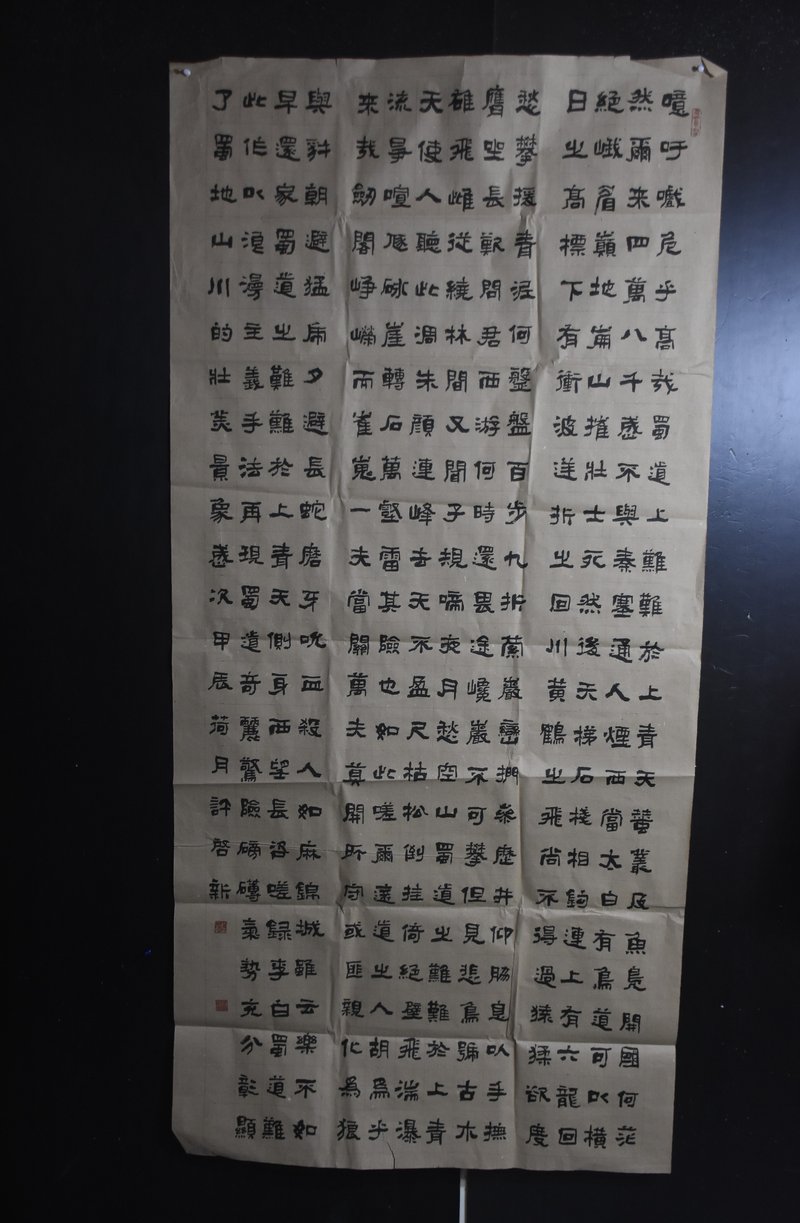 噫吁嚱危乎高哉蜀道之難難於上青天蠶叢及魚鳧開國何茫
然爾來四萬八千歲不與秦塞通人煙西當太白有鳥道可以橫
絕峨眉巔地崩山摧壯士死然後天梯石棧相鉤連上有六龍回
日之高標下有衝波逆折之回川黃鶴之飛尚不得過猿猱欲度
愁攀援青泥何盤盤百步九折縈巖巒捫參歷井仰脅息以手撫
膺坐長歎問君西游何時還畏途巉巖不可攀但見悲鳥號古木
雄飛雌從繞林間又聞子規啼夜月愁空山蜀道之難難於上青
天使人聽此凋朱顏連峰去天不盈尺枯松倒挂倚絕壁飛湍瀑
流爭喧豗砯崖轉石萬壑雷其險也如此嗟爾遠道之人胡爲乎
來哉劍閣崢嶸而崔嵬一夫當關萬夫莫開所守或匪親化為狼
與豺朝避猛虎夕避長蛇磨牙吮血殺人如麻錦城雖云樂不如
早還家蜀道之難難於上青天側身西望長咨嗟錄李白蜀道難
此作以浪漫主義手法再現蜀道奇麗驚險磅礴氣勢充分彰顯
了蜀地山川的壯美景象歲次甲辰荷月許啓新